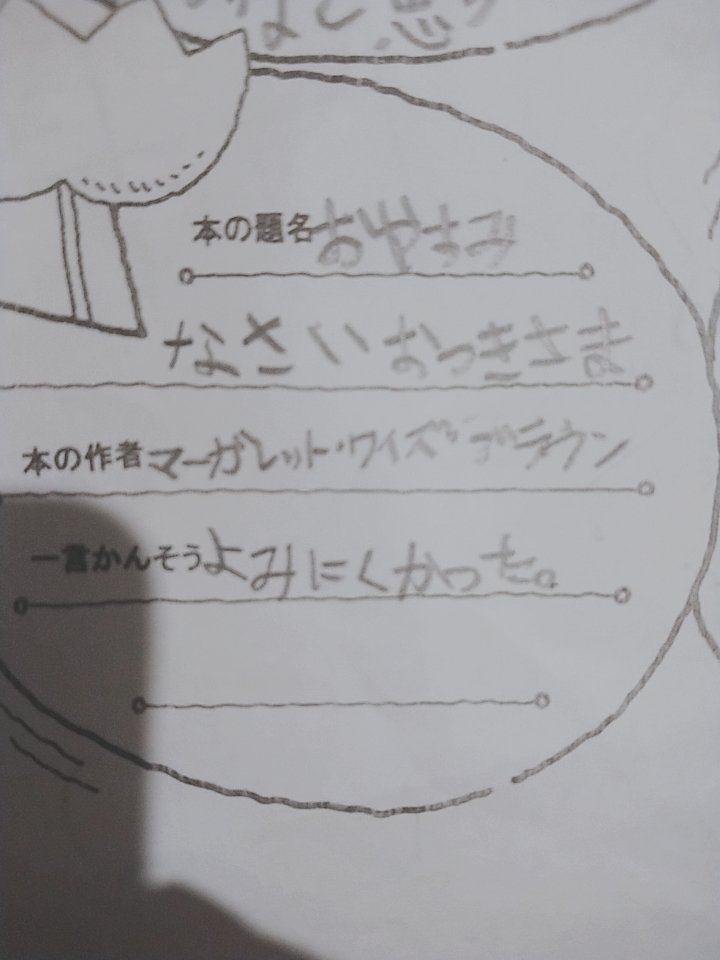 なと思う
本の題名おやすみ
なさいおつきさま
本の作者マーガレット・ワイズ・ブラウン
一言かんそうよみにくかった。